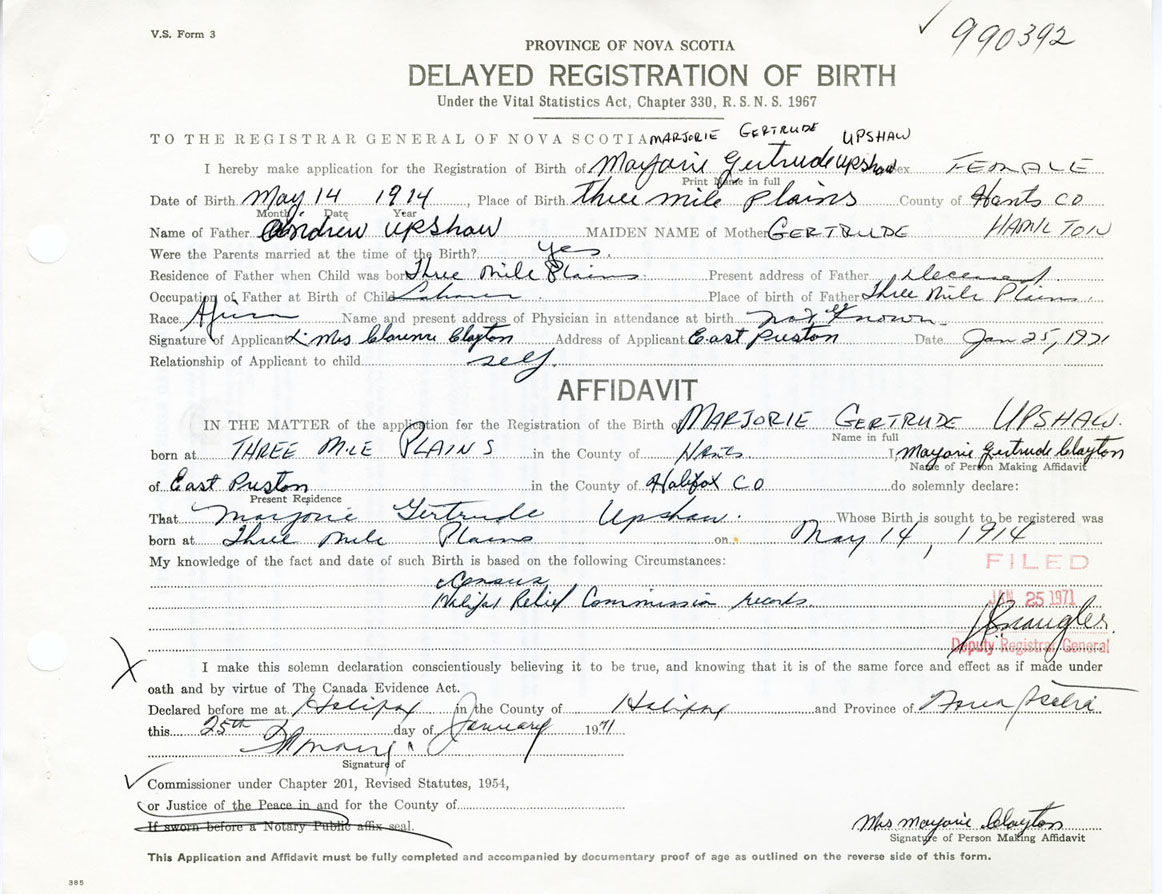 V.S. Form 3
✓ 990392
PROVINCE OF NOVA SCOTIA
DELAYED REGISTRATION OF BIRTH
Under the Vital Statistics Act, Chapter 330, R.S.N.S. 1967
TO THE REGISTRAR GENERAL OF NOVA SCOTIA MARJORIE GERTRUDE UPSHAW
I hereby make application for the Registration of Birth of Marjorie Gertrude Upshaw Sex FEMALE
Print Name in full
Date of Birth May 14 1914, Place of Birth Three mile Plains County of Hants Co
Month Date Year
Name of Father Andrew UPSHAW MAIDEN NAME of Mother GERTRUDE HAMILTON
Were the Parents married at the time of the Birth? yes.
Residence of Father when Child was born Three Mile Plains Present address of Father Deceased
Occupation of Father at Birth of Child Labourer Place of birth of Father Three Mile Plains
Race Name and present address of Physician in attendance at birth not known
Signature of Applicant Mrs Clarence Clayton Address of Applicant East Preston Date Jan 25, 1971
Relationship of Applicant to child self.
AFFIDAVIT
IN THE MATTER of the application for the Registration of the Birth of MARJORIE GERTRUDE UPSHAW.
Name in full
born at THREE MILE PLAINS in the County of Hants I, Marjorie Gertrude Clayton
Name of Person Making Affidavit
of East Preston in the County of Halifax CO do solemnly declare:
Present Residence
That Marjorie Gertrude Upshaw. Whose Birth is sought to be registered was
born at Three Mile Plains on May 14, 1914
My knowledge of the fact and date of such Birth is based on the following Circumstances:
FILED
Census
JAN 25 1971
Halifax Relief Commission records.
Deputy Registrar General
X I make this solemn declaration conscientiously believing it to be true, and knowing that it is of the same force and effect as if made under
oath and by virtue of The Canada Evidence Act.
Declared before me at Halifax in the County of Halifax and Province of Nova Scotia
this 25th day of January 1971
Signature of
✓ Commissioner under Chapter 201, Revised Statutes, 1954,
or Justice of the Peace in and for the County of
If sworn before a Notary Public affix seal.
Mrs Marjorie Clayton
Signature of Person Making Affidavit
This Application and Affidavit must be fully completed and accompanied by documentary proof of age as outlined on the reverse side of this form.
385